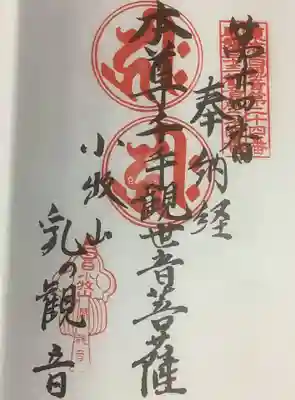 第廿四番
奉納経
本尊千手觀世音菩薩
小牧山
乳の觀音